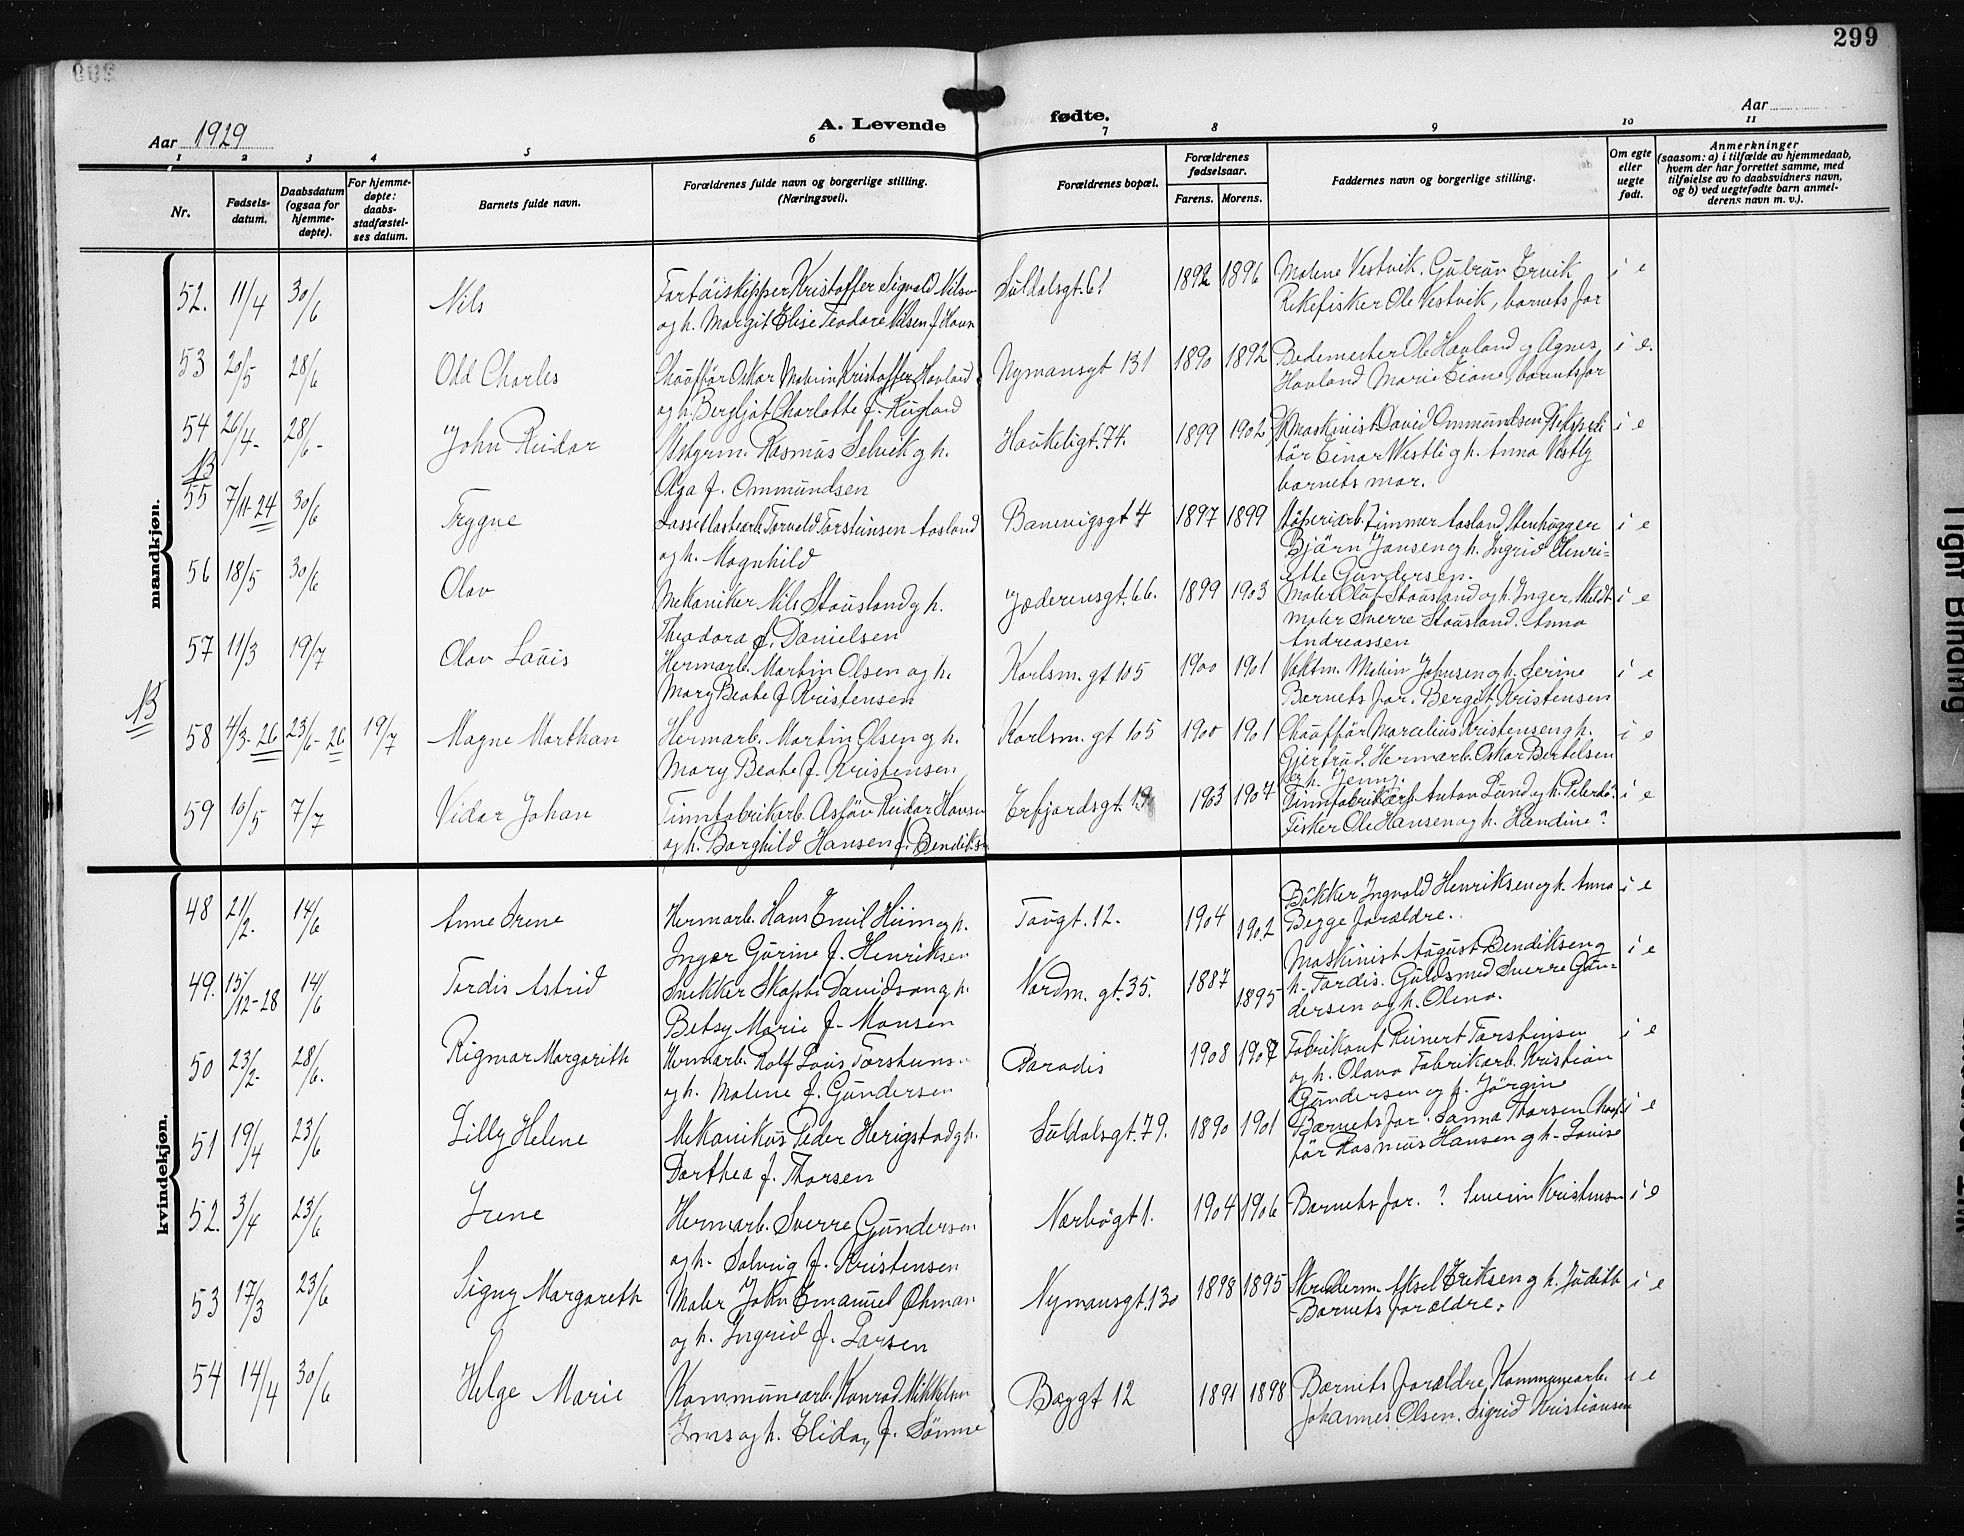 299
Aar 1929
A. Levende fødte.
Aar
1 2 3 4 5 6 7 8 9 10 11
Nr.
Fødsels-
datum.
Daabsdatum
(ogsaa for
hjemme-
døpte).
For hjemme-
døpte:
daabs-
stadfæstel-
ses datum.
Barnets fulde navn.
Forældrenes fulde navn og borgerlige stilling.
(Næringsvei).
Forældrenes bopæl.
Forældrenes
fødselsaar.
Farens. Morens.
Faddernes navn og borgerlige stilling.
Om egte
eller
uegte
født.
Anmerkninger
(saasom: a) i tilfælde av hjemmedaab,
hvem der har forrettet samme, med
tilføielse av to daabsvidners navn,
og b) ved uegtefødte barn anmel-
derens navn m. v.).
mandkjøn.
52. 11/4 30/6 Nils
Fartöiskipper Kristoffer Sigvald Nilsen
og h. Margit Elise Teodore Nilsen f. Havn
Suldalsgt. 61 1892 1896
Malene Vestvik. Gudrun Ervik
Rekefisker Ole Vestvik, barnets far
i e
53 20/5 28/6 Odd Charles
Chaufför Oskar Mobrin Kristoffer Havland
og h. Bergljot Charlotte f. Kugland
Nymansgt 131 1890 1892
Bedemester Ole Havland og Agnes
Havland Marie Eiane, barnets far
i e.
54 26/4- 28/6- John Reidar
Ustyrm. Rasmus Selvik og h.
Aga f. Ommundsen
Haukeligt. 74. 1899 1902
Maskinist David Ommundsen
tör Einar Westli og h. Anna Vestly
barnets mor.
i e
NB
55 7/11-24 30/6 Trygve
Lasse Lastearb. Torvald Torsteinsen Aasland
og h. Magnhild
Banevigsgt 4 1897 1899
Stöperiarb. Timmar Aasland, Stenhugger
Björn Jansen og h. Ingrid Henri-
ette Gundersen.
i e
56 18/5 30/6 Olav
Mekaniker Nils Stousland og h.
Theodora f. Danielsen
Jæderensgt. 66. 1899 1903
Maler Oluf Stousland og h. Inger,
maler Sverre Stousland. Anna
Andreassen
i e
57 11/3 19/7 Olav Louis
Hermarb. Martin Olsen og h.
Mary Beate f. Kristensen
Karlsm. gt 105 1900 1901
Vaktm. Johnsen og h. Serine
Barnets far. Bergit Kristensen
i e
NB
58 4/3-26 23/6-26 19/7 Magne Marthan
Hermarb. Martin Olsen og h.
Mary Beate f. Kristensen
Karlsm. gt 105 1900 1901
Chaufför Marcelius Kristensen og h.
Gjertrud. Hermarb. Oskar Bertelsen
og h. Jenny.
i e
59 10/5 7/7 Vidar Johan
Tinnfabrikarb. Aslöv Reidar Hansen
og h. Borghild Hansen f. Bendiksen
Erfjordsgt. 19 1903 1904
Tinnfabrikarb Anton Lund og h.
Fisker Ole Hansen og h. Handine?
i e
kvindekjøn.
48 21/2- 14/6 Anne Irene
Hermarb. Hans Emil Hiim og h.
Inger Gurine f. Henriksen
Taugt. 12. 1904 1902
Bökker Ingvald Henriksen og h. Anna
Begge forældre.
i e
49. 15/12-28 14/6 Tordis Astrid
Snekker Skapte Davidson og h.
Betsy Marie f. Monsen
Nordm. gt. 35. 1887 1895
Maskinist August Bendiksen og
h. Tordis. Guldsmed Sverre Gun-
dersen og h. Olena.
i e
50 23/2- 28/6. Rigmar Margareth
Hermarb. Rolf Louis Torsteins-
og h. Malene f. Gundersen
Paradis 1908 1907
Fabrikant Reinert Torsteinsen
og h. Olava Fabrikarb. Kristian
Gundersen og h. Jörgine
i e
51 19/4 23/6 Lilly Helene
Mekanikus Peder Herigstad og h.
Dorthea f. Thorsen
Suldalsgt. 79. 1890 1901
Barnets far. Sanna Thorsen Chauf-
för Rasmus Hansen og h. Louise
i e
52. 3/4 23/6 Irene
Hermarb. Sverre Gundersen
og h. Solveig f. Kristensen
Nærbögt 1. 1904 1906
Barnets far. ? Severin Kristensen
i e
53 17/3 23/6 Signy Margareth
Maler John Emanuel Öhman
og h. Ingrid f. Larsen
Nymansgt. 130 1898 1895
Skrædderm. Aksel Eriksen og h. Judith
Barnets forældre.
i e
54 14/4 30/6 Helge Marie
Kommunearb. Konrad Mikkelsen
Ims og h. Elida, f. Sömme
Bøygt 12 1891 1898
Barnets forældre, Kommunearb.
Johannes Olsen. Sigrid Kristiansen
i e